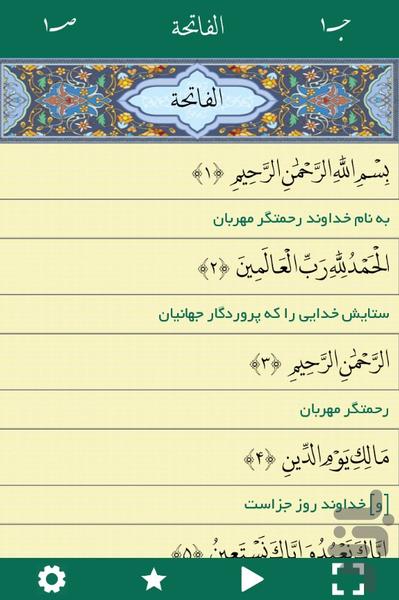 جـ۱
الفاتحة
صـ۱
الفاتحة
بِسْمِ اللَّهِ الرَّحْمَٰنِ الرَّحِيمِ ﴿۱﴾
به نام خداوند رحمتگر مهربان
الْحَمْدُ لِلَّهِ رَبِّ الْعَالَمِينَ ﴿۲﴾
ستایش خدایی را که پروردگار جهانیان
الرَّحْمَٰنِ الرَّحِيمِ ﴿۳﴾
رحمتگر مهربان
مَالِكِ يَوْمِ الدِّينِ ﴿۴﴾
[و] خداوند روز جزاست
إِيَّاكَ نَعْبُدُ وَإِيَّاكَ نَسْتَعِينُ ﴿۵﴾